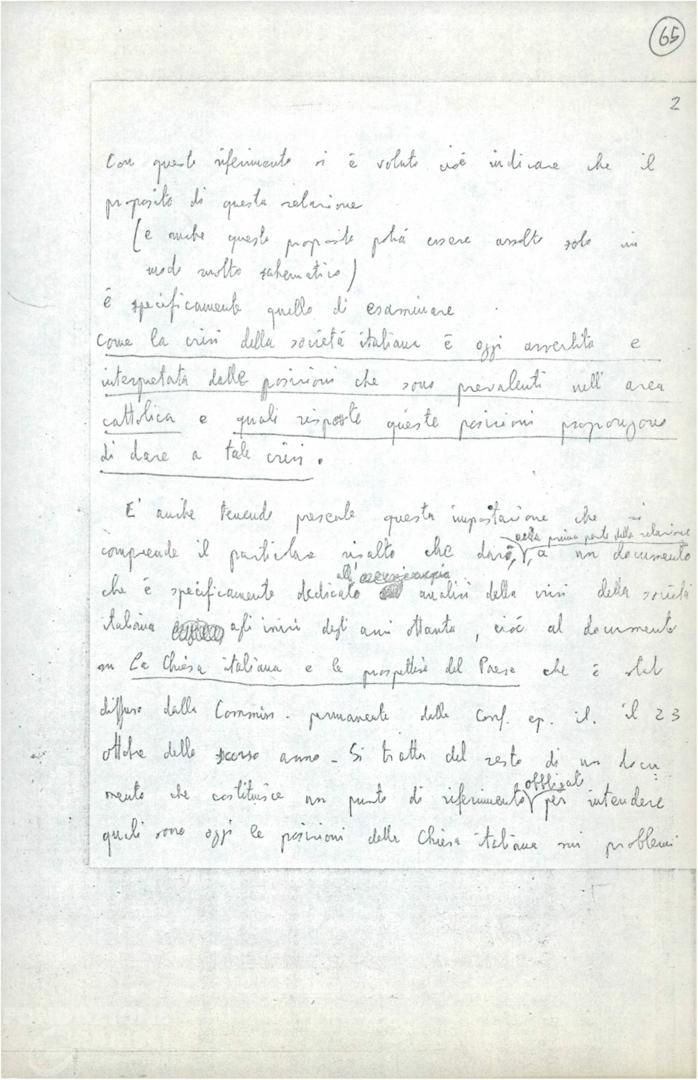 65
2
Con questo riferimento si è voluto cioè indicare che il
proposito di questa relazione
(e anche questo proposito potrà essere assolto solo in
modo molto schematico)
è specificamente quello di esaminare
come la crisi della società italiana è oggi avvertita e
interpretata dalle posizioni che sono prevalenti nell'area
cattolica e quali risposte queste posizioni propongono
di dare a tale crisi.
E' anche tenendo presente questa impostazione che si
nella prima parte della relazione
comprende il particolare risalto che darò, a un documento
all'
che è specificamente dedicato analisi della crisi della società
italiana agli inizi degli anni ottanta, cioè al documento
su La Chiesa italiana e le prospettive del Paese che è stato
diffuso dalla Commiss. permanente della Conf. ep. it. il 23
ottobre dello scorso anno - Si tratta del resto di un docu
obbligato
mento che costituisce un punto di riferimento per intendere
quali sono oggi le posizioni della Chiesa italiana sui problemi